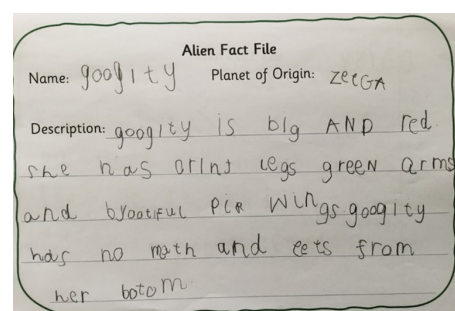 Alien Fact File
Name: googity Planet of Origin: zeeGA
Description: googity is big AND red
she has orint legs green arms
and byootiful PER wings. googity
has no muth and eets from
her botom